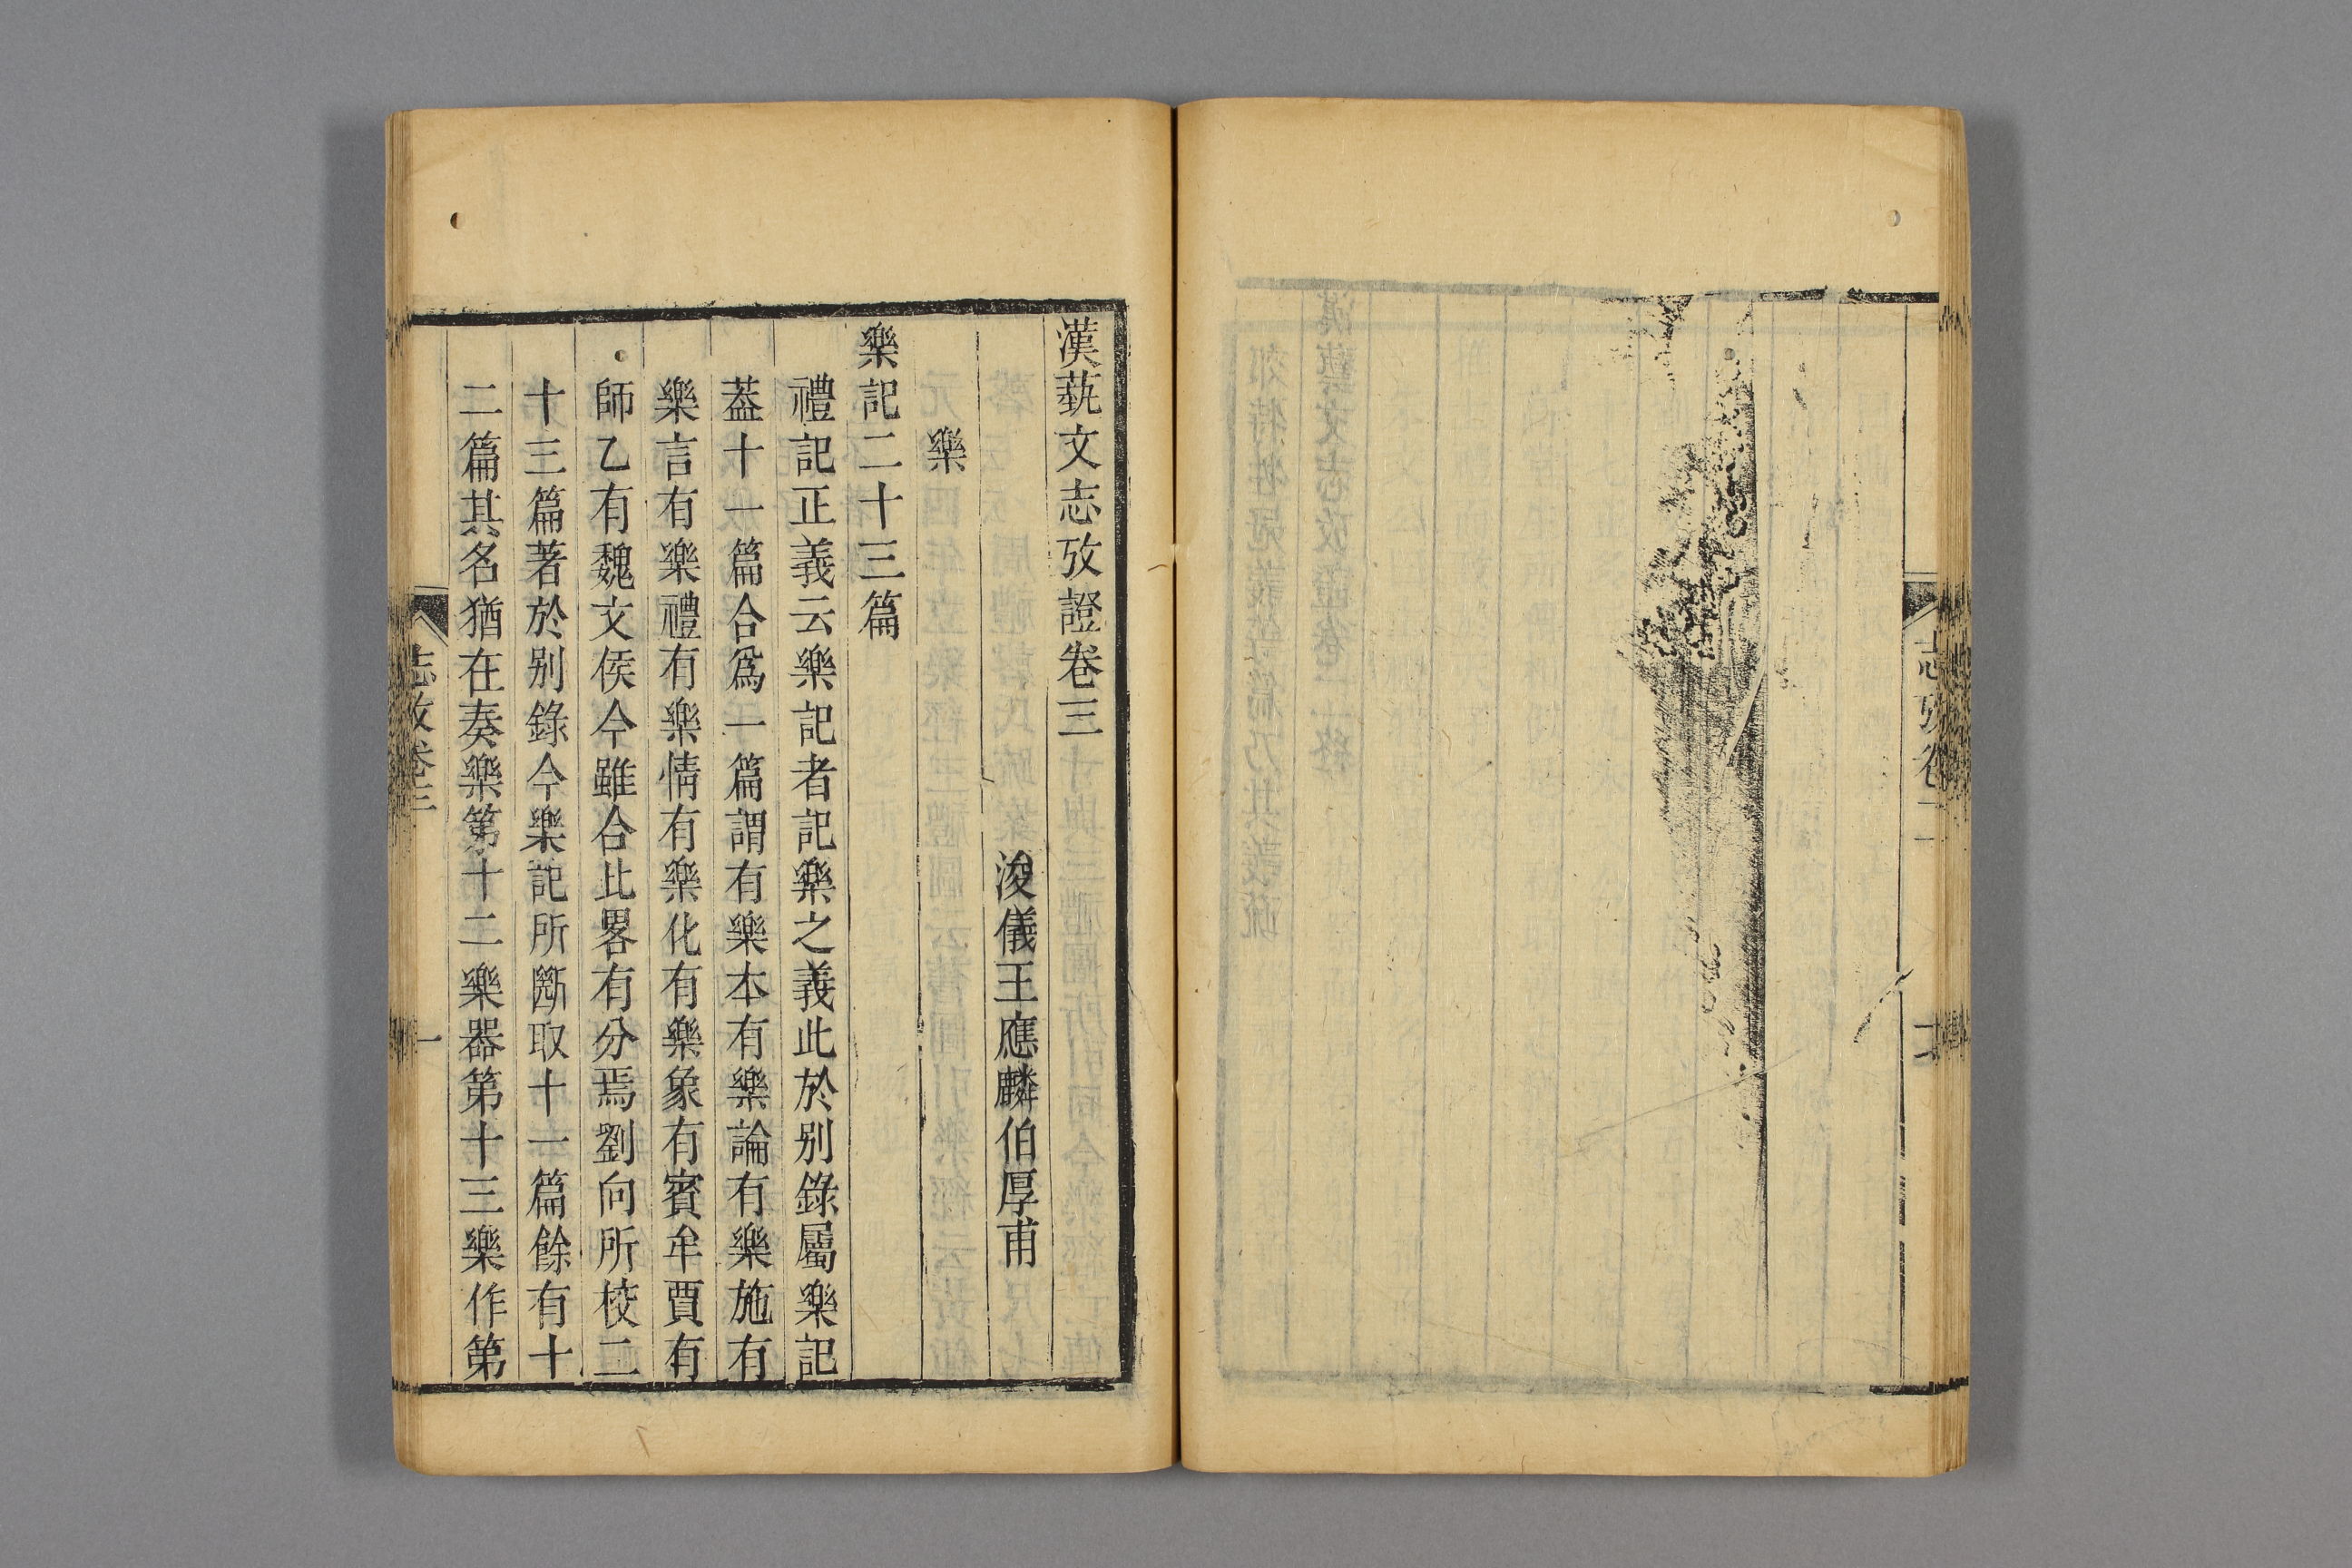 漢蓺文志攷證卷三
浚儀王應麟伯厚甫
樂
樂記二十三篇
禮記正義云樂記者記樂之義此於别錄屬樂記
葢十一篇合爲一篇謂有樂本有樂論有樂施有
樂言有樂禮有樂情有樂化有樂象有賓牟賈有
師乙有魏文侯今雖合此畧有分焉劉向所校二
十三篇著於别錄今樂記所斷取十一篇餘有十
二篇其名猶在奏樂第十二樂器第十三樂作第
志攷卷三
一